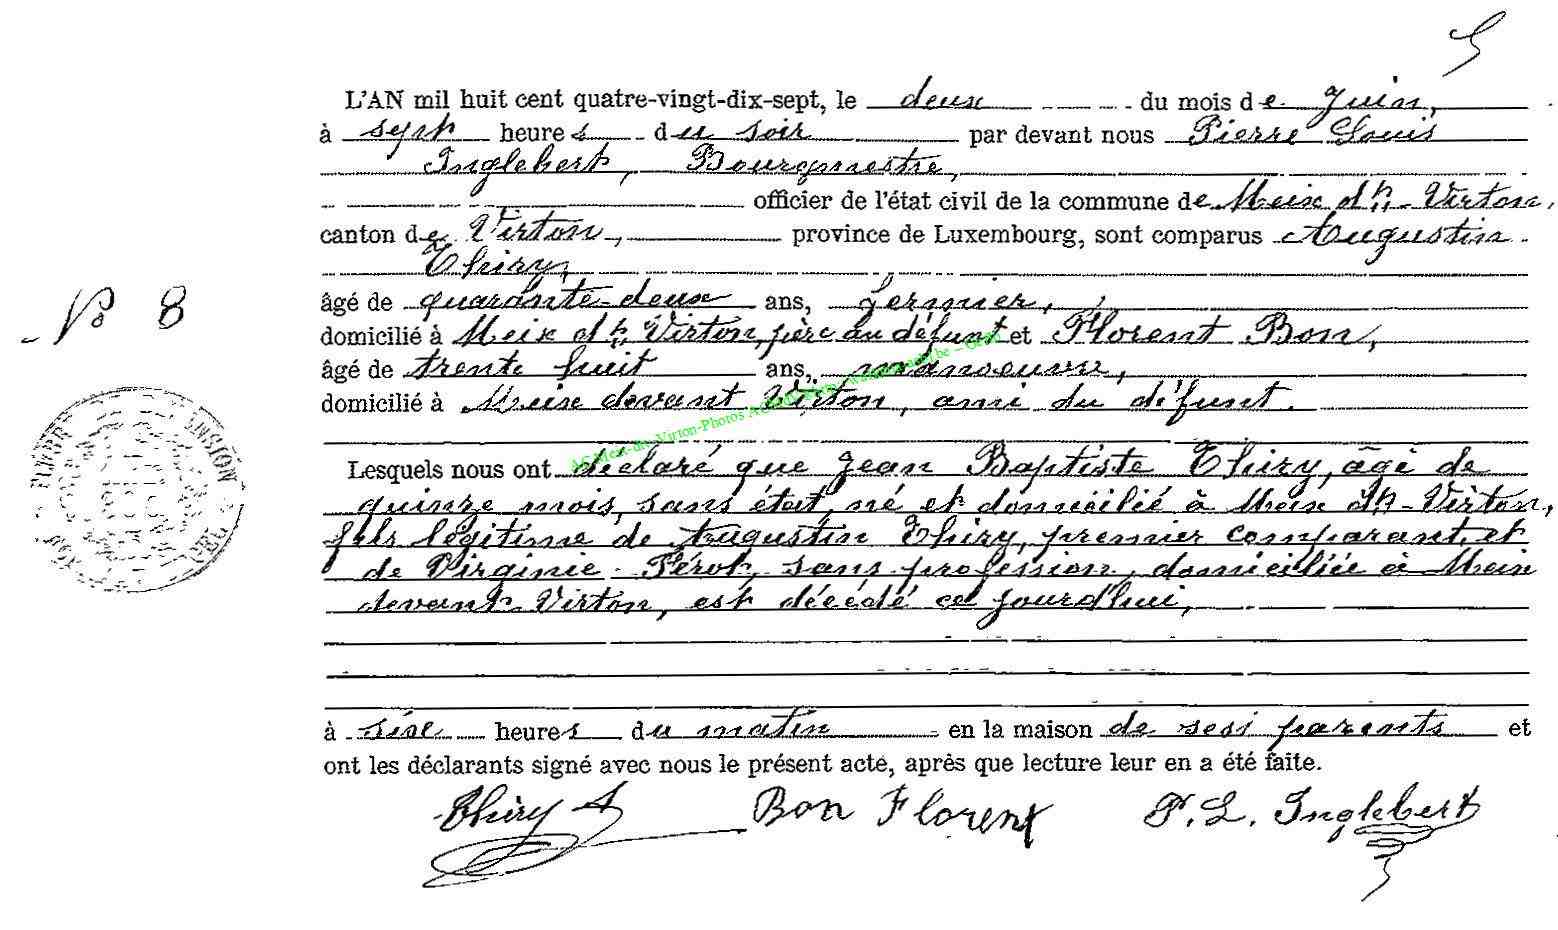 L'AN mil huit cent quatre-vingt-dix-sept, le deux du mois de Juin,
à sept heures du soir par devant nous Pierre Louis
Inglebert, Bourgmestre,
officier de l'état civil de la commune de Meix dt. Virton,
canton de Virton, province de Luxembourg, sont comparus Augustin
Thiry,
N° 8
âgé de quarante-deux ans, fermier,
domicilié à Meix dt. Virton, père du défunt et Florent Bon,
âgé de trente huit ans, manoeuvre,
domicilié à Meix devant Virton, ami du défunt.
Lesquels nous ont déclaré que Jean Baptiste Thiry, âgé de
quinze mois, sans état, né et domicilié à Meix dt-Virton,
fils légitime de Augustin Thiry, premier comparant, et
de Virginie Pérot, sans profession, domiciliée à Meix
devant-Virton, est décédé ce jourd'hui,
à six heures du matin en la maison de ses parents et
ont les déclarants signé avec nous le présent acte, après que lecture leur en a été faite.
Thiry A Bon Florent P. L. Inglebert